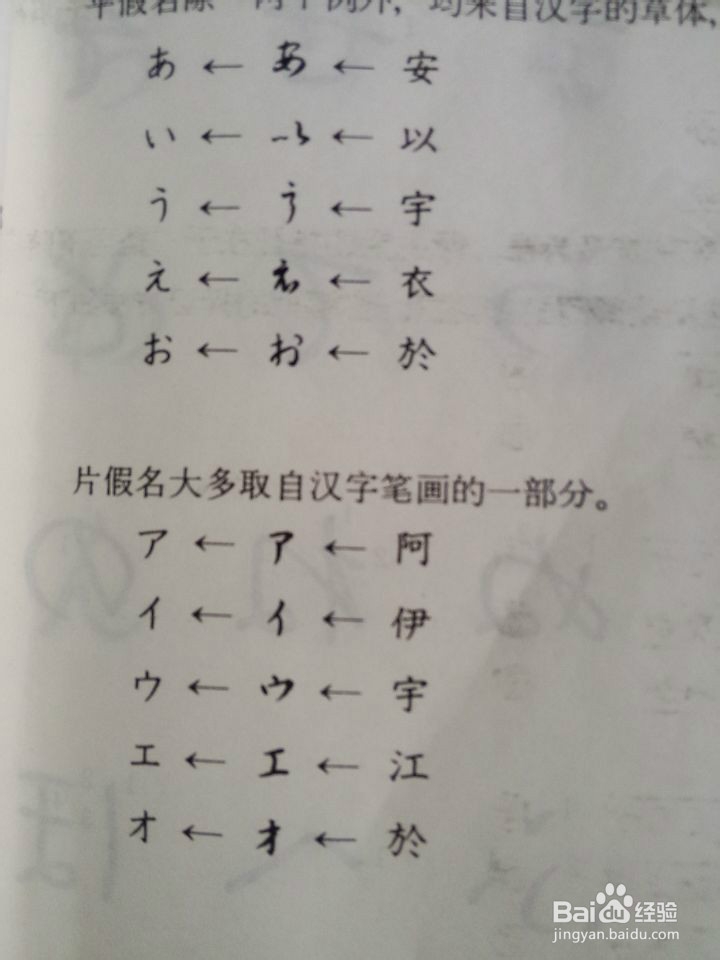 平假名除一两个例外，均来自汉字的草体，
あ ← あ ← 安
い ← い ← 以
う ← う ← 宇
え ← え ← 衣
お ← お ← 於
片假名大多取自汉字笔画的一部分。
ア ← ア ← 阿
イ ← イ ← 伊
ウ ← ウ ← 宇
エ ← エ ← 江
オ ← オ ← 於
Baidu经验
jingyan.baidu.com